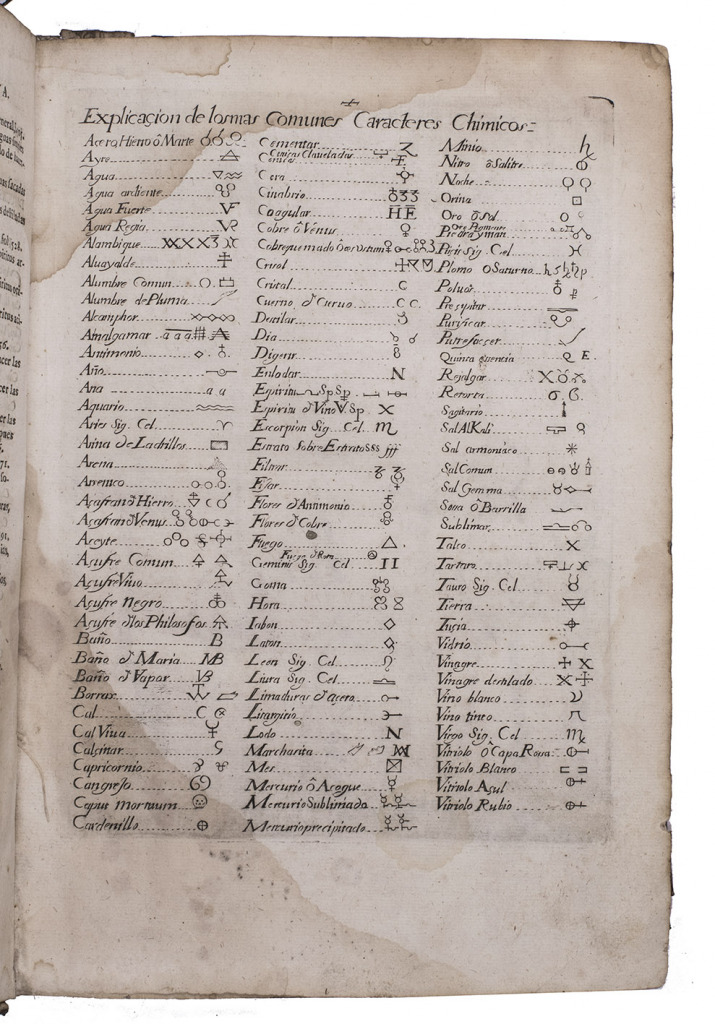 Explicaçion de los mas Comunes Caracteres Chimicos
Acero Hierro ô Marte
Ayre
Agua
Agua ardiente
Agua Fuerte
Agua Regia
Alambique
Aluayalde
Alumbre Comun
Alumbre de Pluma
Alcamphor
Amalgamar a a a
Antimonio
Año
Ana a a
Aquario
Aries Sig. Cel
Arina de Ladrillos
Arena
Arsenico
Açafran đ Hierro
Açafran đ Venus
Aceyte
Açufre Comun
Açufre Vivo
Açufre negro
Açufre đ los Philosofos
Baño B
Baño đ Maria MB
Baño đ Vapor VB
Borrax
Cal C
Cal Viva
Calcinar
Capricornio
Cangrejo
Caput mortuum
Cardenillo
Cementar
Ceniças Claueladas
Cenica
Cera
Cinabrio
Coagular HE
Cobre ô Venus
Cobre quemado ô
Crisol
Cristal C
Cuerno đ Cieruo C C
Destilar
Dia
Digerir
Enlodar N
Espiritu Sp Sp
Espiritu đ Vino V. Sp
Escorpion Sig. Cel
Estrato Sobre Estrato SSS fff
Filtrar
Fixar
Flores đ Antimonio
Flores đ Cobre
Fuego
Fuego đ Rota
Geminis Sig. Cel
Goma
Hora
Iabon
Laton
Leon Sig. Cel
Liura Sig. Cel
Limaduras đ acero
Litargirio
Lodo N
Marchasita
Mes
Mercurio ô Açogue
Mercurio Sublimada
Mercurio precipitado
Minio
Nitro ô Salitre
Noche
Orina
Oro ô Sol
Oro Pigmento
Piedra Yman
Picis Sig. Cel
Plomo ô Saturno
Poluos
Presipitar
Purificar
Putrefacser
Quinta esencia Q E.
Rejalgar
Retorta
Sagitario
Sal Al Kali
Sal armoniaco
Sal Comun
Sal Gemma
Sosa ô Barrilla
Sublimar
Talco X
Tartaro
Tauro Sig Cel
Tierra
Tucia
Vidrio
Vinagre
Vinagre destilado
Vino blanco
Vino tinto
Virgo Sig Cel
Vitriolo ô Capa Rosa
Vitriolo Blanco
Vitriolo Asul
Vitriolo Rubio